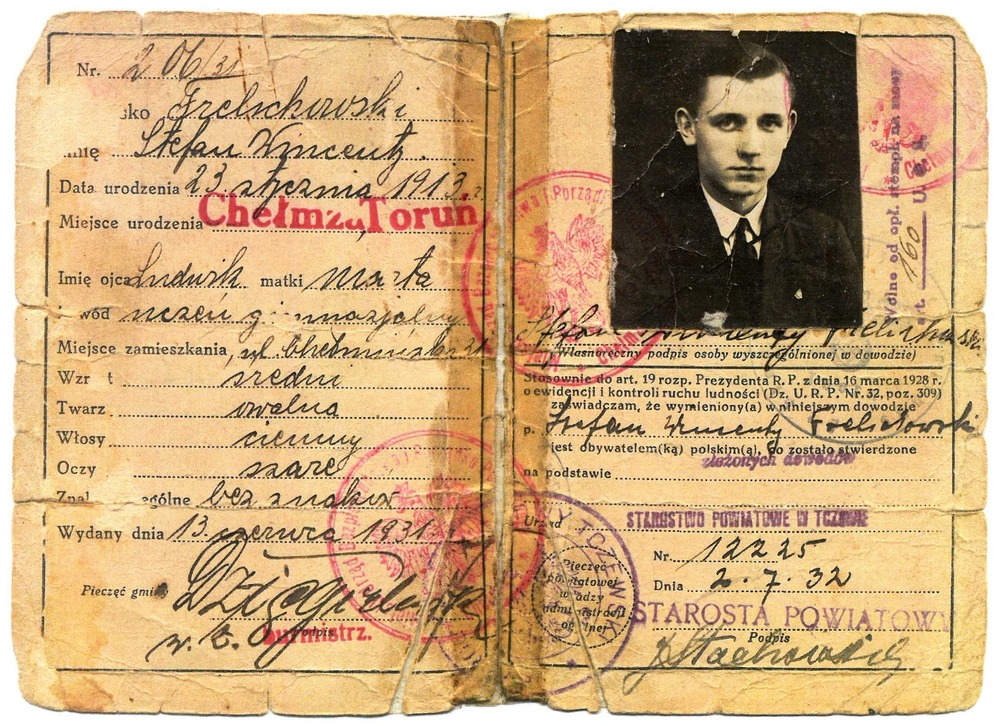 Nr. 206/31
sko Frelichowski
Imię Stefan Wincenty.
Data urodzenia 23 stycznia 1913.
Miejsce urodzenia Chełmża, Toruń
Imię ojca Ludwik matki Marta
wód uczeń gimnazjalny
Miejsce zamieszkania, ul. Chełmińska
Wzr t średni
Twarz owalna
Włosy ciemny
Oczy szare
Znal ególne bez znaków
Wydany dnia 13 czerwca 1931
Pieczęć gminy
Podpis
burmistrz.
wa i Porząd
Wolne od opł. stempl. na mocy
art. 160 U. S.
Stefan Wincenty Frelichowski
(Własnoręczny podpis osoby wyszczególnionej w dowodzie)
Stosownie do art. 19 rozp. Prezydenta R. P. z dnia 16 marca 1928 r.
o ewidencji i kontroli ruchu ludności (Dz. U. R. P. Nr. 32, poz. 309)
zaświadczam, że wymieniony(a) w niniejszym dowodzie
p. Stefan Wincenty Frelichowski
jest obywatelem(ką) polskim(ą), co zostało stwierdzone
na podstawie złożonych dowodów
Urząd STAROSTWO POWIATOWE W TCZEWIE
Nr. 12225
Dnia 2.7.32
Pieczęć
powiatowej
władzy
administracji
ogólnej
STAROSTA POWIATOWY
Podpis